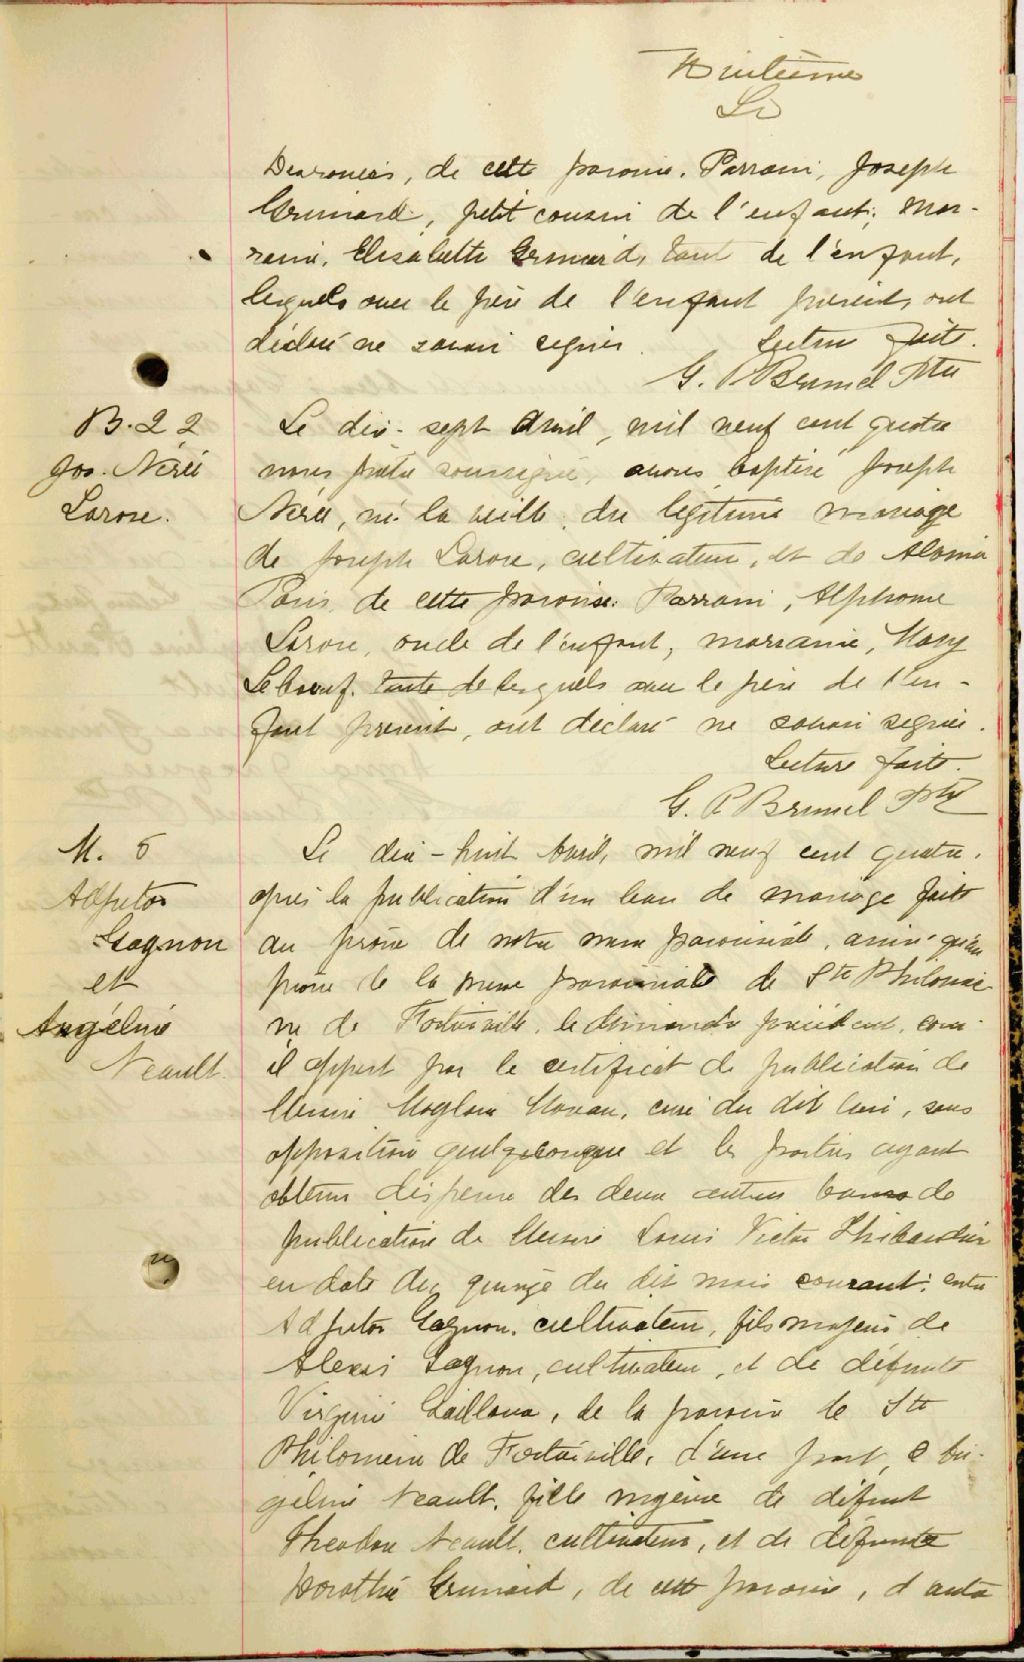 Huitième
Le
Desrosiers, de cette paroisse. Parrain, Joseph
Grimard, petit cousin de l'enfant; mar-
raine, Elisabette Grimard, tante de l'enfant,
lesquels avec le père de l'enfant présents ont
déclaré ne savoir signer. Lecture faite.
G. P. Brunel Ptre
B. 22
Jos. Nérée
Larose.
Le dix-sept Avril, mil neuf cent quatre
nous prêtre soussigné, avons baptisé Joseph
Nérée, né la veille, du légitime mariage
de Joseph Larose, cultivateur, et de Alexina
Paris, de cette paroisse. Parrain, Alphonse
Larose, oncle de l'enfant, marraine, Mary
Leboeuf. tante de lesquels avec le père de l'en-
fant présent, ont déclaré ne savoir signer.
Lecture faite.
G. P. Brunel Ptre
M. 6
Adjutor
Gagnon
et
Angélina
Neault.
Le dix-huit Avril, mil neuf cent quatre,
après la publication d'un ban de mariage faite
au prône de notre messe paroissiale, ainsi qu'au
prône de la messe paroissiale de Ste Philomè-
ne de Fortierville, le dimanche précédent, com
il appert par le certificat de publication de
Messire Magloire Moreau, curé du dit lieu, sans
opposition quelquonque et les parties ayant
obtenu dispense des deux autres bans de
publication de Messire Louis Victor Thibaudier
en date du quinze du dit mois courant; entre
Adjutor Gagnon, cultivateur, fils majeur de
Alexis Gagnon, cultivateur, et de défunte
Virginie, de la paroisse de Ste
Philomène de Fortierville, d'une part, & An-
gélina Neault, fille majeure de défunt
Théodore Neault, cultivateur, et de défunte
Dorothée Grimard, de cette paroisse, d'autre